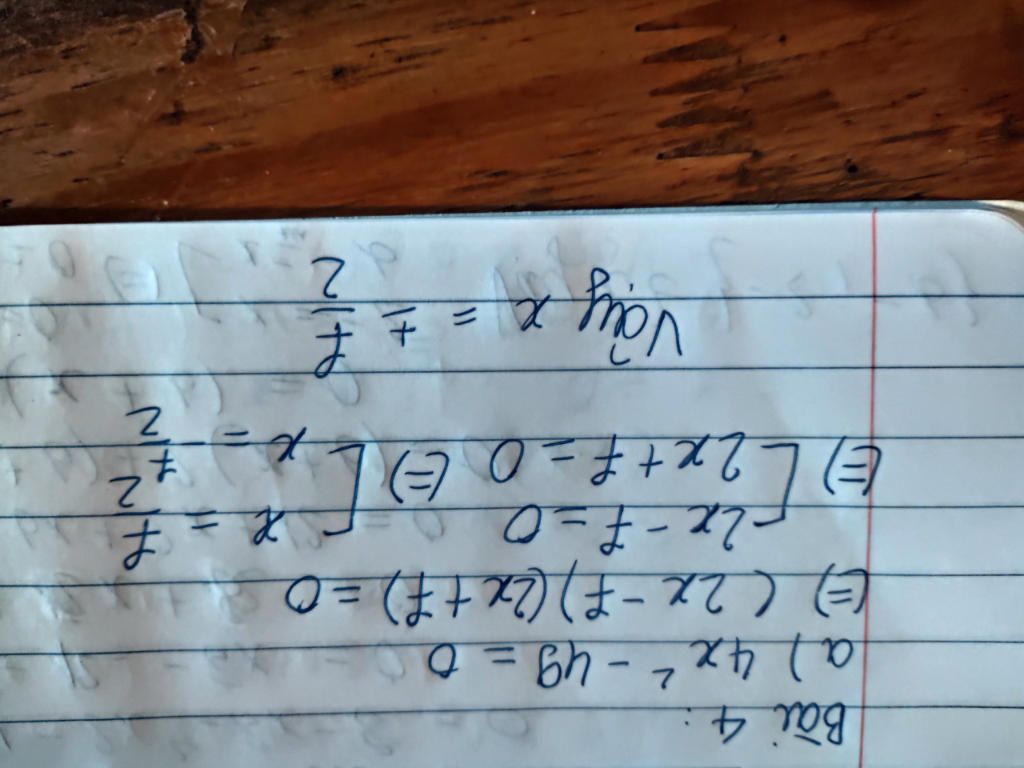 Bài 4:
a) 4x² - 49 = 0
(=) (2x - 7)(2x + 7) = 0
(=) [ 2x - 7 = 0 (=) [ x = 7/2
2x + 7 = 0 x = -7/2
Vậy x = ± 7/2